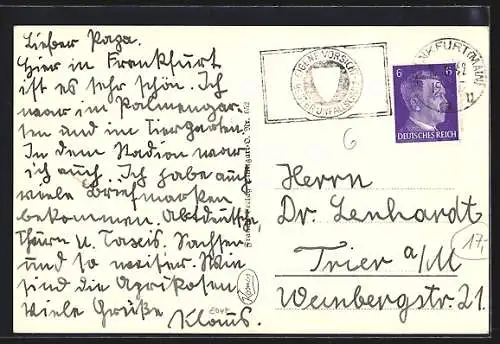 Lieber Papa.
Hier in Frankfurt
ist es sehr schön. Ich
war im Palmengar-
ten und im Tiergarten.
In dem Stadion war
ich auch. Ich habe auch
viele Briefmarken
bekommen. Altdeutsche,
Thurn u. Taxis. Sachsen
und so weiter. Wie
sind die Aprikosen
Viele Grüße
Klaus.
VORSICHT
FRANKFURT (MAIN)
6 6
DEUTSCHES REICH
6
Herrn
Dr. Lenhardt
Trier a/M
Weinbergstr. 21.
17,-